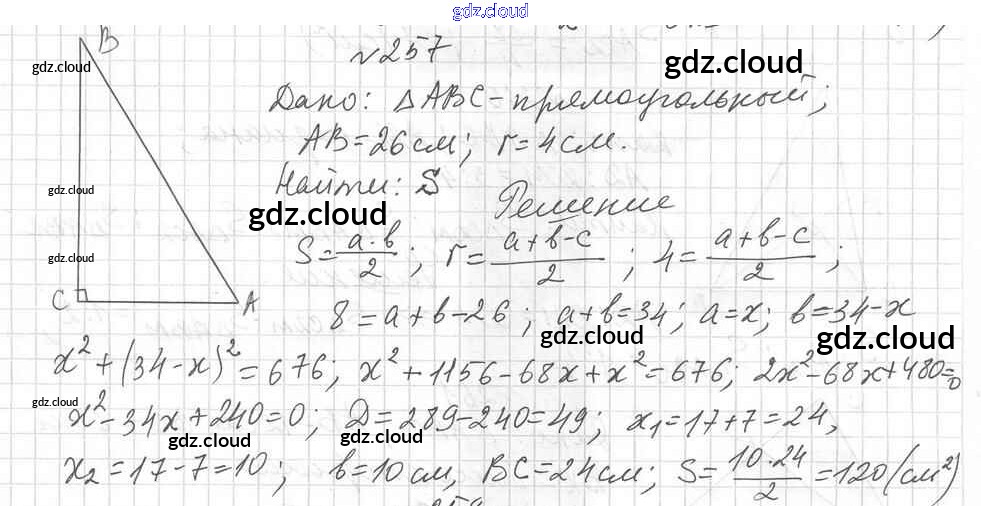 gdz.cloud
B
№257
gdz.cloud
gdz.cloud
Дано: △ABC-прямоугольный;
AB=26см; r=4см.
gdz.cloud
Найти: S
gdz.cloud
Решение
S=a·b/2; r=a+b-c/2; 4=a+b-c/2;
gdz.cloud
C A
8=a+b-26; a+b=34; a=x; b=34-x
gdz.cloud gdz.cloud
x²+(34-x)²=676; x²+1156-68x+x²=676; 2x²-68x+480=0
gdz.cloud
x²-34x+240=0; D=289-240=49; x₁=17+7=24,
gdz.cloud gdz.cloud gdz.cloud
x₂=17-7=10; b=10см, BC=24см; S=10·24/2=120(см²)